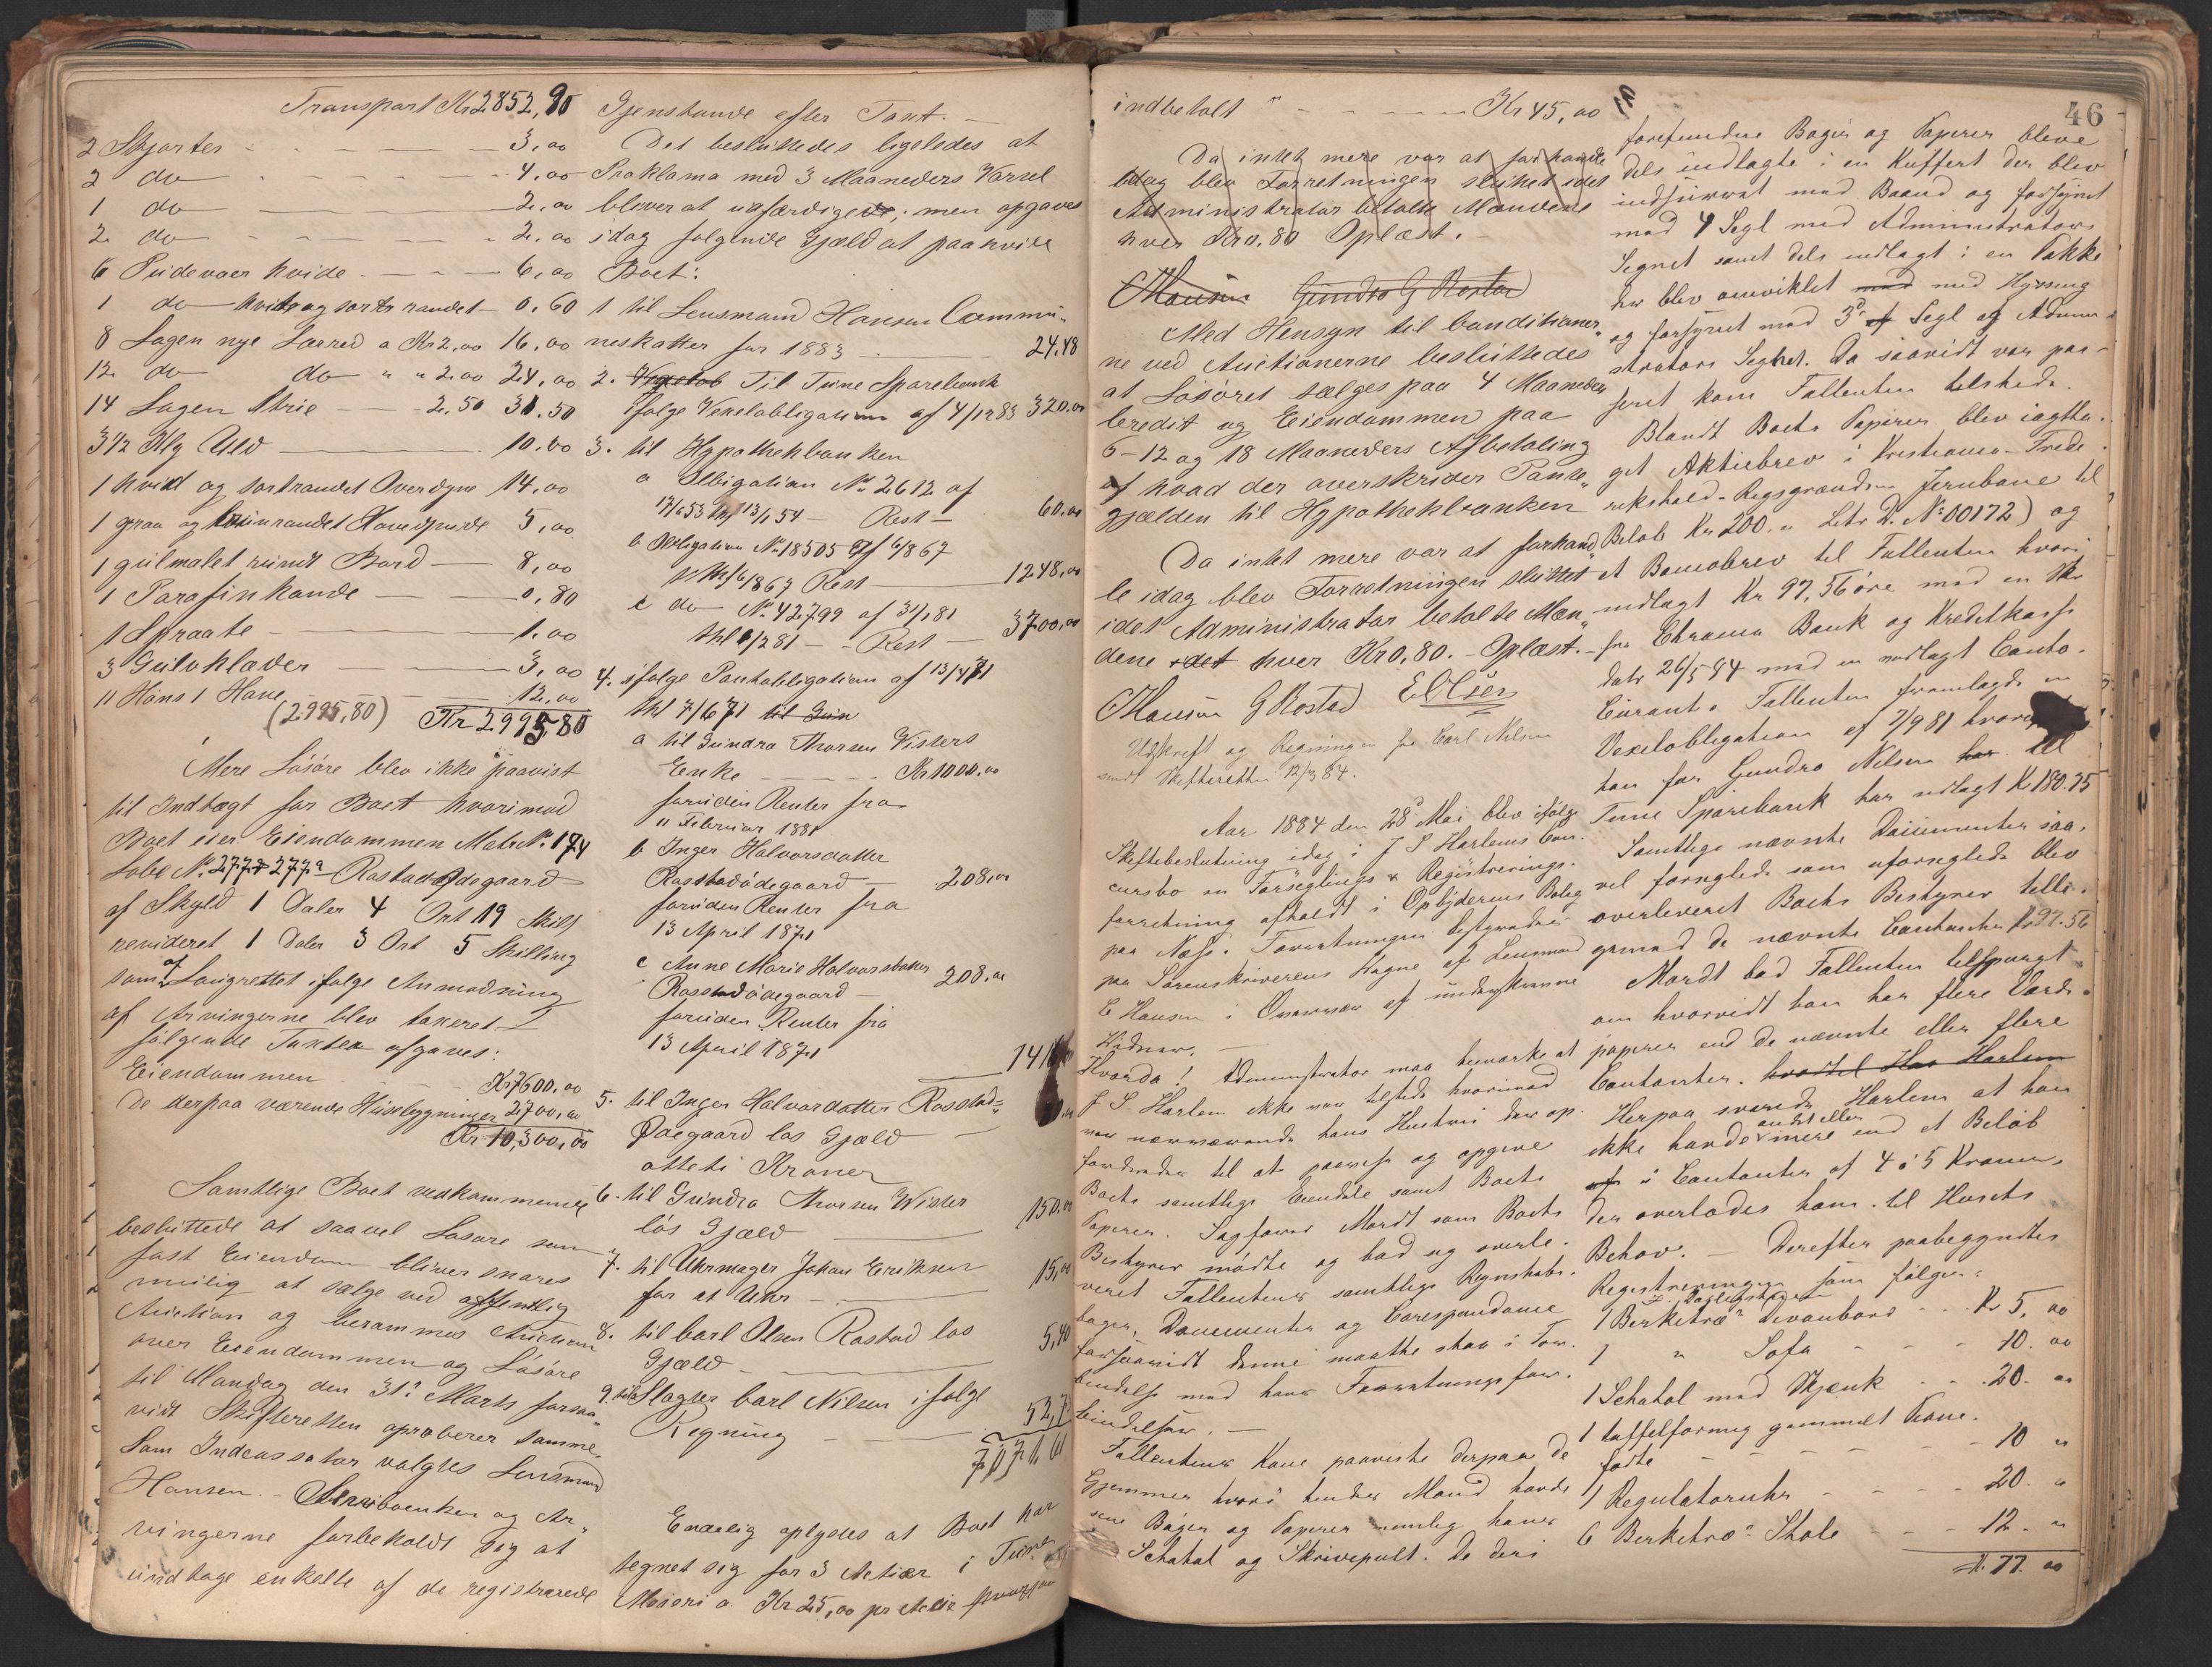 Transport Kr 2852,90
2 Skjorter 3,00
2 do 4,00
1 do 2,00
2 do 2,00
6 Pudevaer hvide 6,00
1 do hvide og sorte randet 0,60
8 Lagen nye Lærred a Kr 2,00 16,00
12 do do " " 2.00 24,00
14 Lagen Strie 2.50 31.50
3 1/2 Klg Uld 10.00
1 hvid og sortrandet Overdyne 14,00
1 graa og brunrandet Hovedpude 5,00
1 gulmalet rundt Bord 8,00
1 Parafinkande 0,80
1 Spraate 1.00
3 Gulvklæder 3,00
11 Høns 1 Hane 12,00
(2995,80) Kr 2995,80
Mere Løsøre blev ikke paavist
til Indtægt for Boet hvorimod
Boet eier Eiendommen Matr No. 174
Løbe No. 277 277a Rostadødegaard
af Skyld 1 Daler 4 Ort 19 Skill
revideret 1 Daler 3 Ort 5 Skilling
som af Laugrettet ifølge Anmodning
af Arvingerne blev takseret
følgende Takster afgaves:
Eiendommen Kr 7600,00
De derpaa værende Husebygninger 2700,00
Kr 10,300,00
Samtlige Boet vedkommende
besluttede at saavel Løsøre som
fast Eiendom bliver snarest
mulig at sælge ved offentlig
Auction og berammes Auction
over Eiendommen og Løsøre
til Mandag den 31te Marts forsaa
vidt Skifteretten aproberer samme.
Som Indcassator valgtes Lensmand
Hansen. - Arviboenken og Ar-
vingerne forbeholdt sig at
undtage enkelte af de registrerede
Gjenstande efter Taxt.
Det besluttedes ligeledes at
Proklama med 3 Maaneders Varsel
bliver at udfærdige, men opgaves
idag følgende Gjæld at paahvile
Boet:
1 til Lensmand Hansen Commu-
neskatter for 1883 24,48
2. Til Tune Sparebank
ifølge Vexelobligation af 4/12 83 320.00
3. til Hypothekbanken
a Obligation No 2612 af
Rest 60.00
b Obligation No 18505 af 6/8 67
Rest 1248,00
c do No. 42799 af 31/1 81
Rest 3700,00
4. ifølge Pantobligation af 13/4 71
thl 7/6 71
a til Gundro Thorsen Visters
Enke Kr 1000,00
foruden Renter fra
11 Februar 1881
b Inger Halvorsdatter
Rosstadødegaard 208,00
foruden Renter fra
13 April 1871
c Anne Marie Halvorsdatter
Rosstadødegaard 208.00
foruden Renter fra
13 April 1871
5. til Inger Halvorsdatter Rosstad-
Ødegaard løs Gjæld
otteti Kroner
6. til Gundro Thorsen Wister
løs Gjæld 150.00
7. til Uhrmager Johan Eriksen
for et Uhr 15,00
8. til Carl Olsen Rostad løs
Gjæld 5,40
9. til Slagter Carl Nilsen ifølge
Regning
Endelig oplystes at Boet har
tegnet sig for 3 Actier i Tune
Meieri a Kr 25,00 pr Actie
46
indbetalt " Kr 45,00
Da intet mere var at forhandle
idag blev Forretningen sluttet idet
Administrator betalte Mændene
hver Kr 0.80 Oplæst.
CHansen Gundro G Rostad
Med Hensyn til Conditioner-
ne ved Auctionerne besluttedes
at Løsøret sælges paa 4 Maaneders
Credit og Eiendommen paa
6-12 og 18 Maaneders Afbetaling
af hvad der overskrider Pante-
gjælden til Hypothekbanken
Da intet mere var at forhand-
le idag blev Forretningen sluttet
idet Administrator betalte Mæn-
dene idet hver Kr 0,80. - Oplæst. -
CHansen G Rostad E Olsen
Udskrift og Regningen fra Carl Nilsen
sendt Skifteretten 12/3 84.
Aar 1884 den 28de Mai blev ifølge
Skiftebeslutning idag i J S Harlems Con-
cursbo en Forseglings & Registrerings-
forretning afholdt i Opbyderens Bolig
paa Næss. Forretningen bestyredes
paa Sorenskriverens Vegne af Lensmand
C Hansen i Overvær af underskrevne
Vidner.
Hvorda! Administrator maa bemærke at
J S Harlem ikke var tilstede hvorimod
var nærværende hans Hustru der op-
fordredes til at paavise og opgive
Boets samtlige Eiendele samt Boets
Papirer. Sagfører Mordt som Boets
Bestyrer mødte og bad sig overle-
veret Fallentens samtlige Regnskabs-
bøger, Documenter og Correspondance
forsaavidt denne maatte staa i For-
bindelse med hans Forretningsfor-
bindelser.
Fallentens Kone paaviste derpaa de
Gjemmer hvori hendes Mand havde
sine Bøger og Papirer nemlig hans
Schatol og Skrivepult. De deri
forefundne Bøger og Papirer bleve
dels indlagte i en Kuffert der blev
indsurret med Baand og forsynet
med 4 Segl med Administrators
Signet samt dels indlagt i en Pakke
der blev omviklet med med Hyssing
og forsynet med 3de Segl af Admini-
strators Signet. Da saavidt var pas-
seret kom Fallenten tilstede.
Blandt Boets Papirer blev iagtta-
get Aktiebrev i Kristiania-Frede-
rikshald-Rigsgrændsen Jernbane til
Beløb Kr 200.. Litr D. No 00172) og
et Bancobrev til Fallenten hvori
indlagt Kr 97,56 øre med en Skr
fra Chrania Bank og Kreditkasse
datr 26/5 84 med en indlagt Conto-
Courant. Fallenten fremlagde en
Vexelobligation af 7/9 81
han for Gundro Nilsen har til
Tune Sparebank har udlagt Kr 180.75
Samtlige nævnte Documenter saa-
vel forseglede som uforseglede blev
overleveret Boets Bestyrer tilli-
gemed de nævnte Contanter Kr 97.56
Mordt bad Fallenten tilspurgt
om hvorvidt han har flere Værdi-
papirer end de nævnte eller flere
Contanter.
Herpaa svarede Harlem at han
ikke havde andet eller mere end et Beløb
af i Contanter af 4 à 5 Kroner,
der overlodes ham til Husets
Behov. - Derefter paabegyndtes
Registreringen som følger:
1 Birketræs Divanbord Kr 5,00
1 " Sofa 10.00
1 Schatol med Skjænk 20.00
1 taffelformig gammelt Piano.
10 "
1 Regulatoruhr 20. "
6 Birketræs Stole 12. "
Kr. 77.00